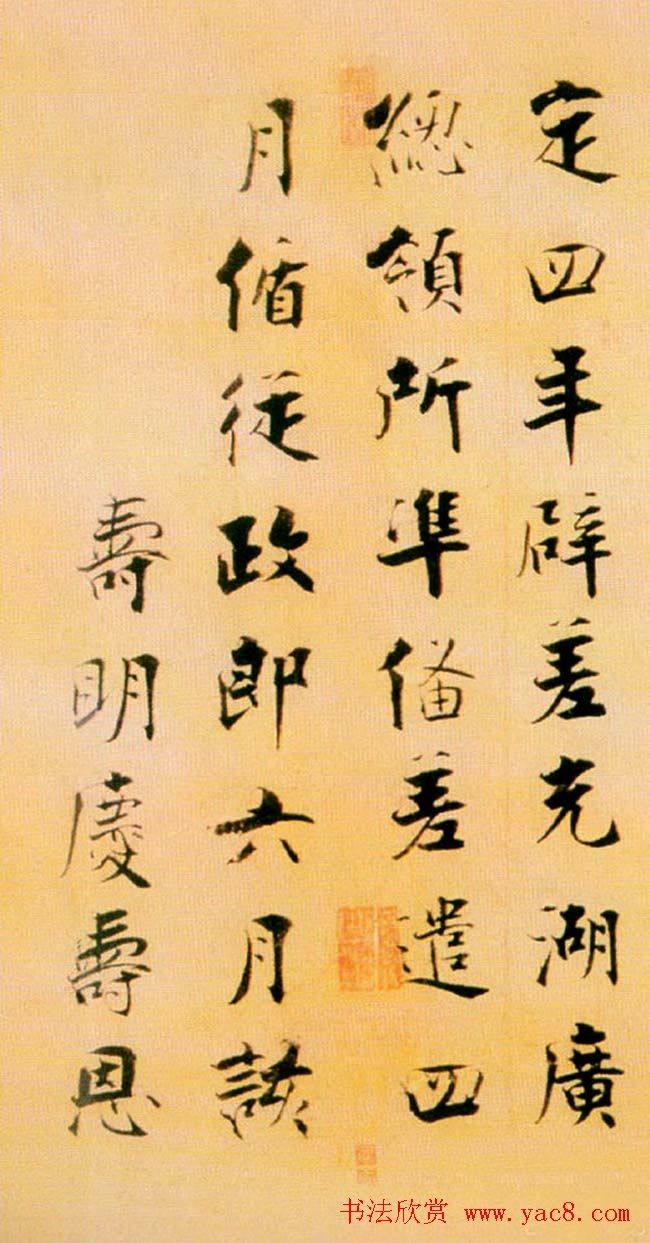 定四年辟差充湖廣
總領所準俻差遣四
月循從政郎六月該
壽明慶壽恩
书法欣赏 www.yac8.com